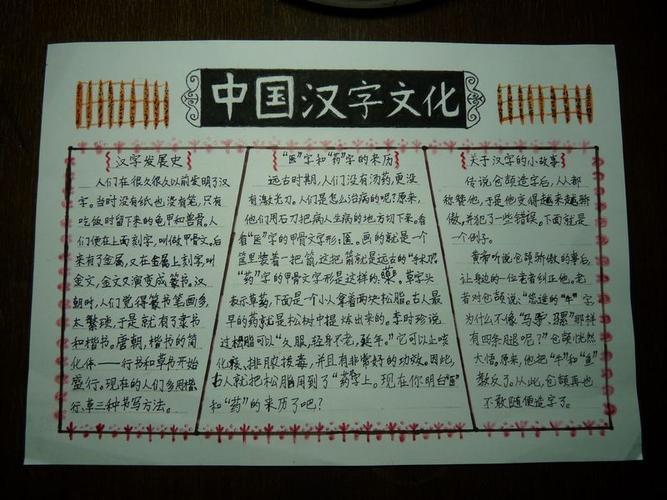 中国汉字文化
汉字发展史
人们在很久很久以前发明了汉
字。当时没有纸也没有笔,只有
吃饭时留下来的龟甲和兽骨。人
们便在上面刻字,叫做甲骨文。后
来有了金属,又在金属上刻字,叫
金文,金文又演变成篆书。汉
朝时,人们觉得篆书笔画多,
太繁琐,于是就有了隶书
和楷书。唐朝,楷书的简
化体——行书和草书开始
盛行。现在的人们多用楷、
行、草三种书写方法。
"医"字和"药"字的来历
远古时期,人们没有汤药,更没
有激光刀。人们是怎么治病的呢?原来,
他们用石刀把病人生病的地方切下来。看
看"医"字的甲骨文字形:医。画的就是一个
筐里装着一把箭,这把箭就是远古的"手术刀"。
"药"字的甲骨文字形是这样的:藥。草字头
表示草药,下面是个小人拿着两块松脂。古人最
早的药就是松树中提炼出来的。李时珍说
过松脂可以"久服,轻身不老,延年。"它可以生咳
化痰、排脓拔毒,并且有非常好的功效。因此,
古人就把松脂用到了"药"字上。现在你明白"医"
和"药"的来历了吧?
关于汉字的小故事
传说仓颉造字后,人人都
称赞他,于是他变得越来越骄
傲,并犯了一些错误。下面就是
一个例子。
黄帝听说仓颉骄傲的事后,
让身边的一位老者纠正他。老
者对仓颉说:"您造的"牛"字
为什么不像"马、骡"那样
有四条腿呢?"仓颉恍然
大悟。原来,他把"牛"和"鱼"
教反了。从此,仓颉再也
不敢随便造字了。